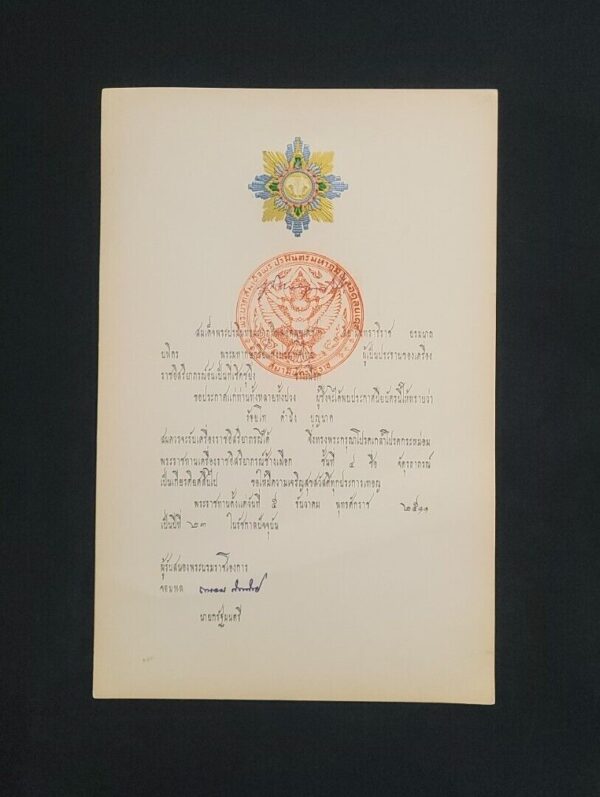 สมเด็จพระปรมินทรมหาภูมิพลอดุลยเดช บรมนาถ
บพิตร พระมหากษัตริย์แห่งประเทศไทย ผู้เป็นประธานของเครื่อง
ราชอิสริยาภรณ์อันเป็นที่เชิดชูยิ่ง
ขอประกาศแก่ท่านทั้งหลายทั้งปวง ผู้ซึ่งจะได้พบประกาศนียบัตรนี้ให้ทราบว่า
ร้อยโท บุญนาค
สมควรจะรับเครื่องราชอิสริยาภรณ์ได้ จึ่งทรงพระกรุณาโปรดเกล้าโปรดกระหม่อม
พระราชทานเครื่องราชอิสริยาภรณ์ช้างเผือก ชั้นที่ ๔ ชื่อ จัตุรถาภรณ์
เป็นเกียรติยศสืบไป ขอให้มีความเจริญสุขสวัสดิ์ทุกประการเทอญ
พระราชทานตั้งแต่วันที่ ๕ ธันวาคม พุทธศักราช ๒๕๑๑
เป็นปีที่ ๒๓ ในรัชกาลปัจจุบัน
ผู้รับสนองพระบรมราชโองการ
จอมพล
นายกรัฐมนตรี